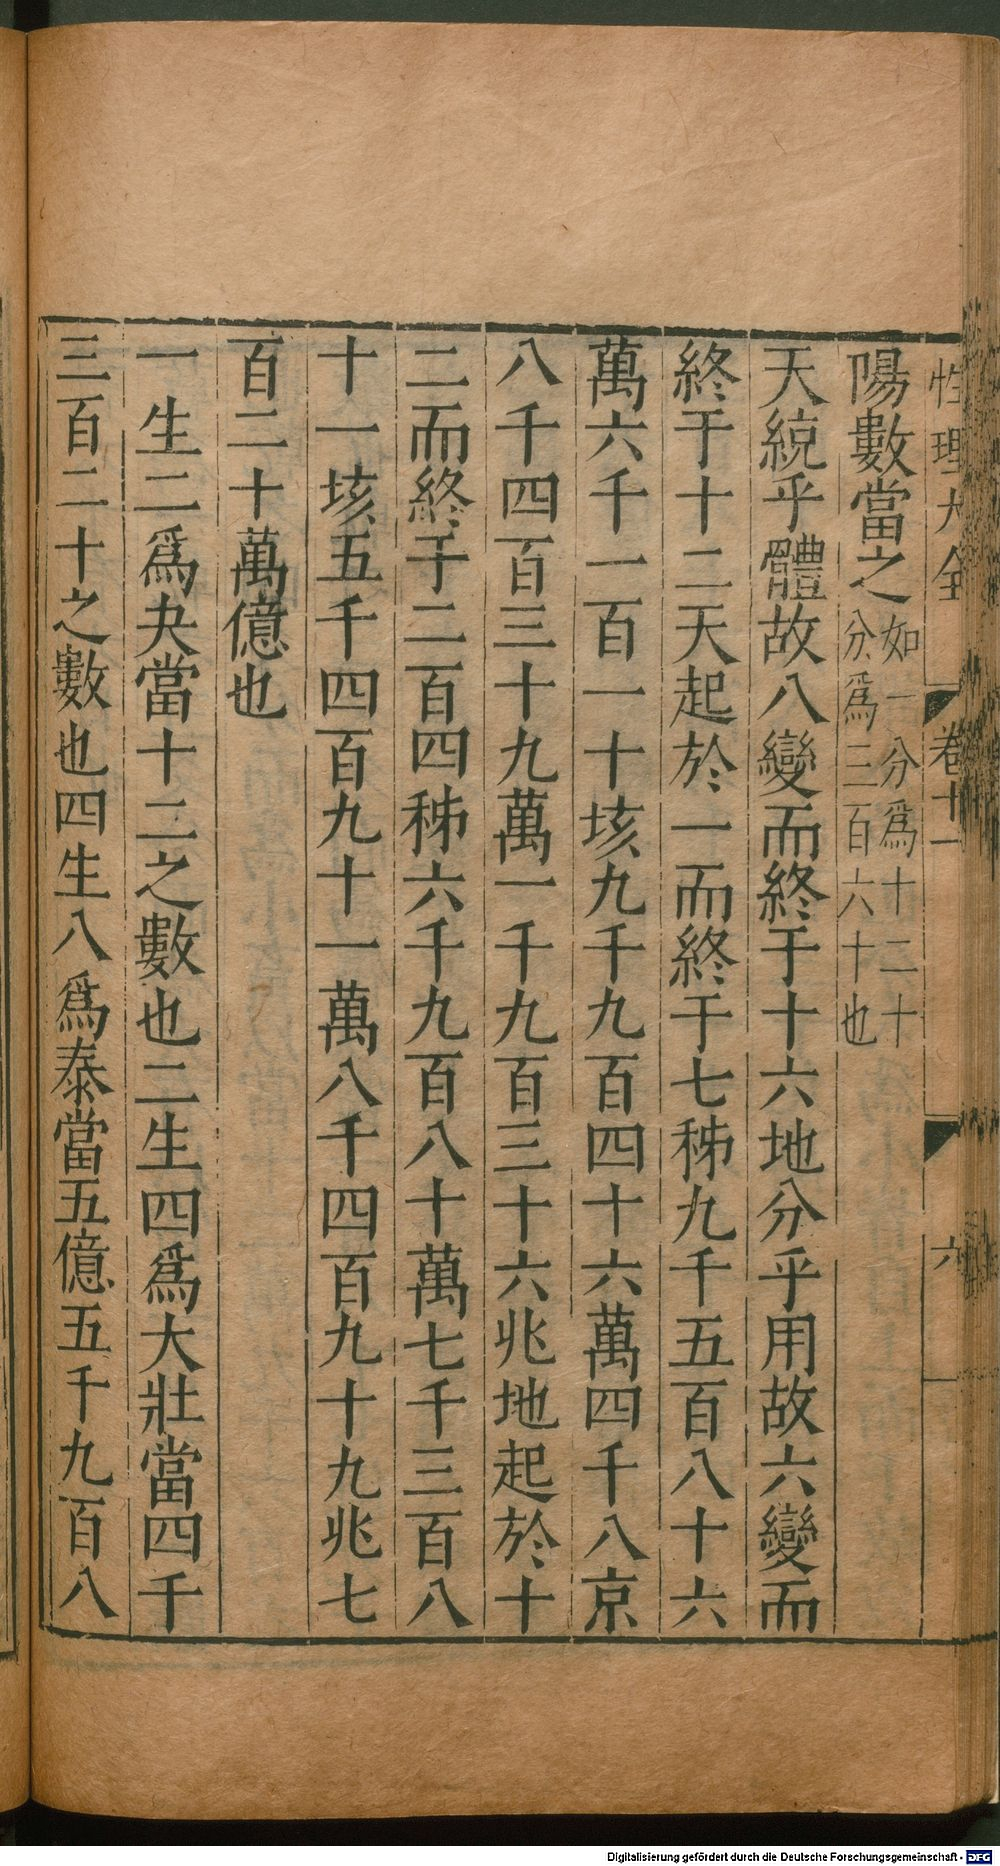 性理大全 卷十一 六
陽數當之如一分為十二十
分為三百六十也
天統乎體故八變而終于十六地分乎用故六變而
終于十二天起於一而終于七秭九千五百八十六
萬六千一百一十垓九千九百四十六萬四千八京
八千四百三十九萬一千九百三十六兆地起於十
二而終于二百四秭六千九百八十萬七千三百八
十一垓五千四百九十一萬八千四百九十九兆七
百二十萬億也
一生二爲夬當十二之數也二生四爲大壯當四千
三百二十之數也四生八爲泰當五億五千九百八
Digitalisierung gefördert durch die Deutsche Forschungsgemeinschaft - DFG